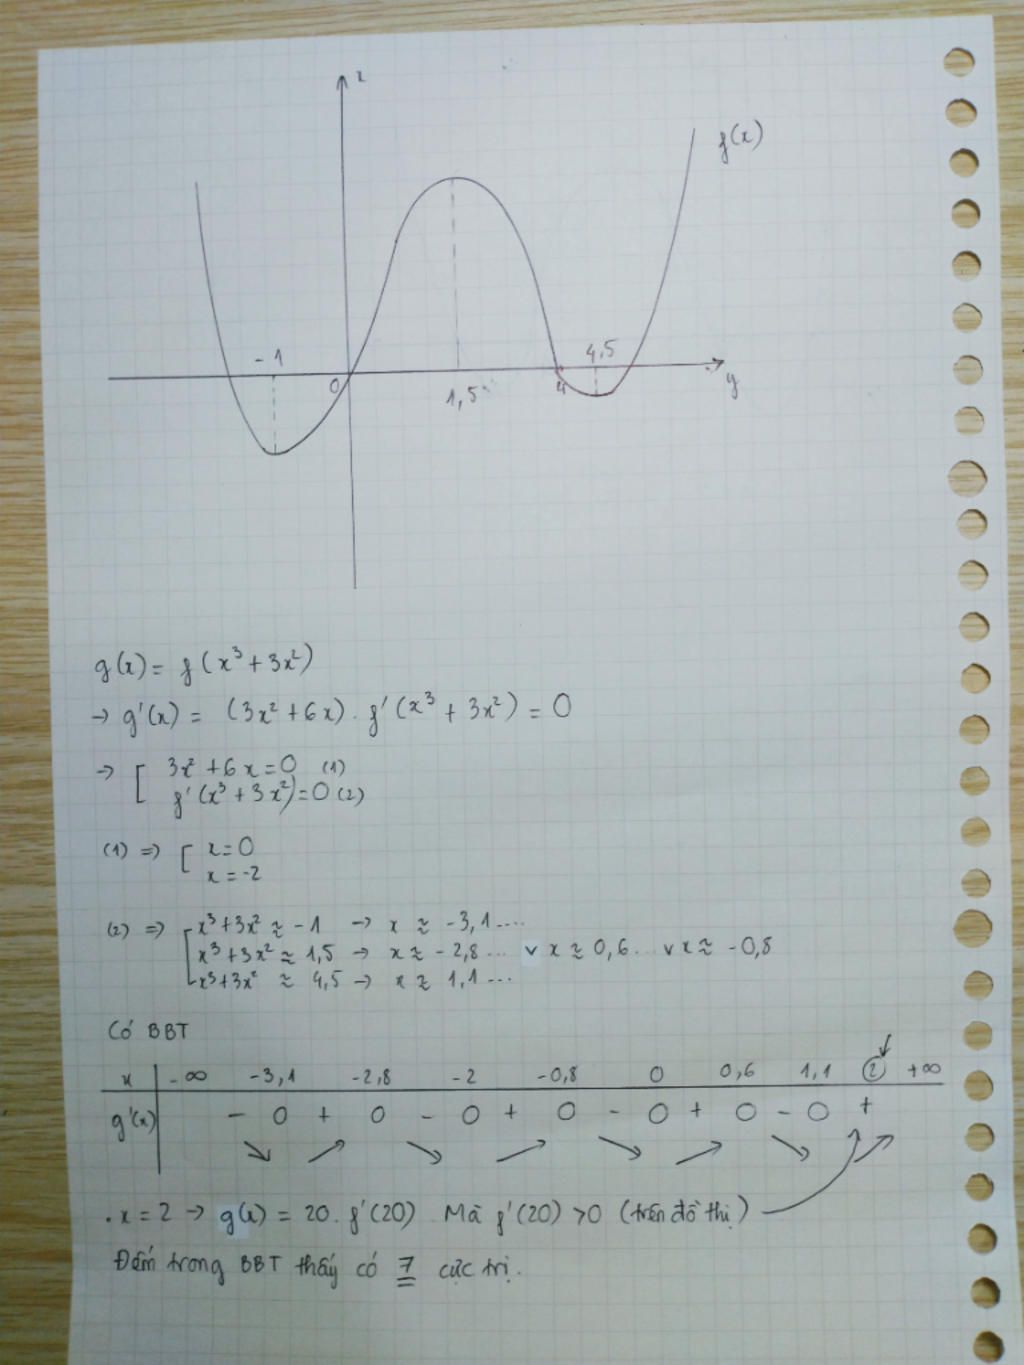 x
f(x)
-1
4,5
0
1,5
4
y
g(x) = f(x³ + 3x²)
→ g'(x) = (3x² + 6x) . f'(x³ + 3x²) = 0
→ [ 3x² + 6x = 0 (1)
f'(x³ + 3x²) = 0 (2)
(1) => [ x = 0
x = -2
(2) => [ x³ + 3x² ≈ -1 → x ≈ -3,1 ....
x³ + 3x² ≈ 1,5 → x ≈ -2,8 ... v x ≈ 0,6 ... v x ≈ -0,8
x³ + 3x² ≈ 4,5 → x ≈ 1,1 ...
Có BBT
x -∞ -3,1 -2,8 -2 -0,8 0 0,6 1,1 2 +∞
g'(x) - 0 + 0 - 0 + 0 - 0 + 0 - 0 +
. x = 2 → g(x) = 20 . f'(20) . Mà f'(20) > 0 (trên đồ thị)
Đếm trong BBT thấy có 7 cực trị.